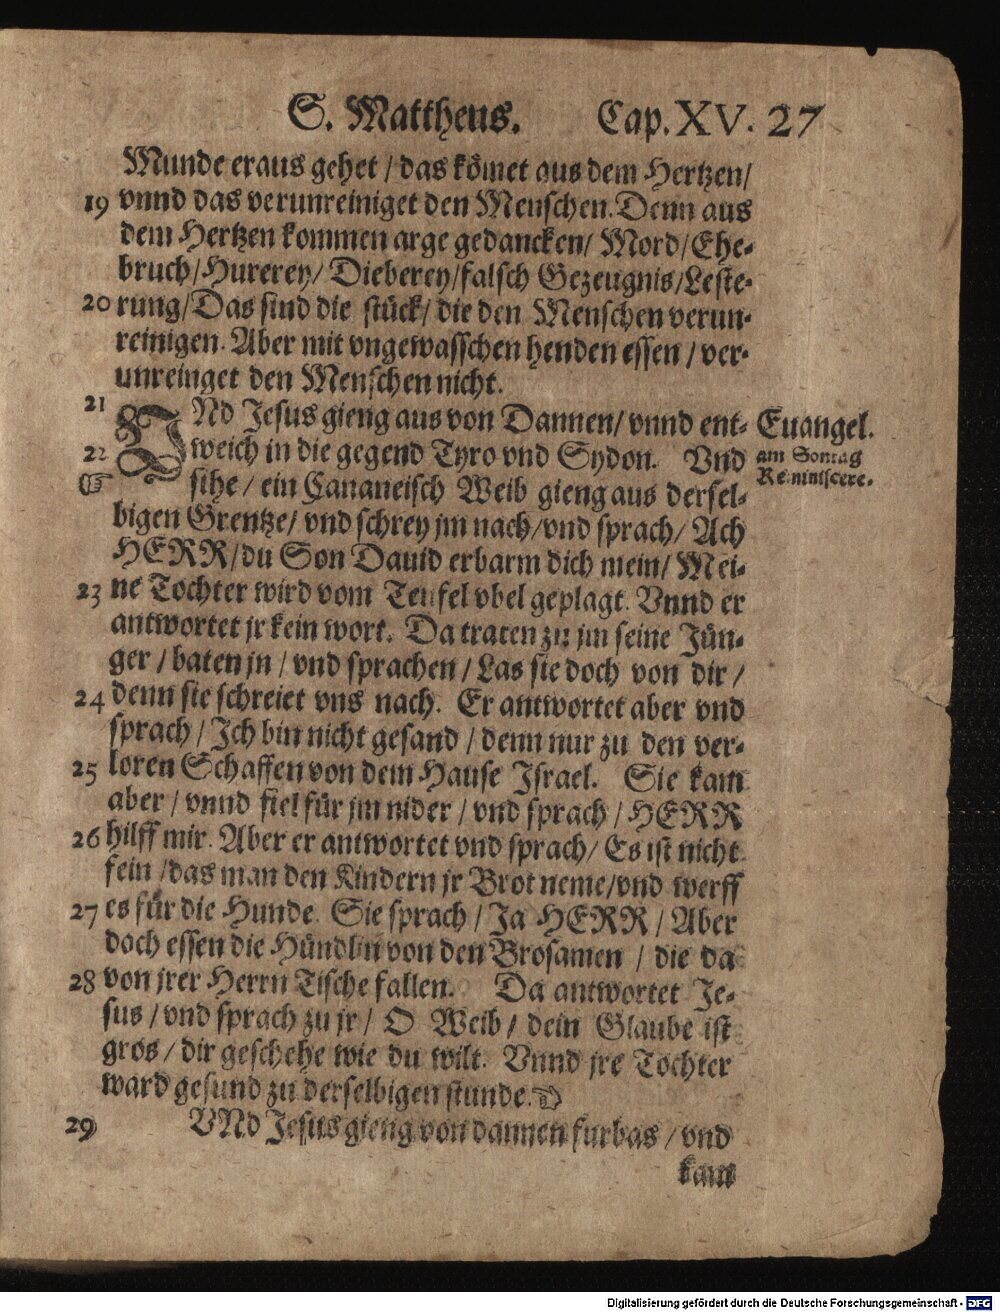 S. Mattheus. Cap. XV. 27
Munde eraus gehet / das kömet aus dem Hertzen/
19 vnnd das verunreiniget den Menschen. Denn aus
dem Hertzen kommen arge gedancken/ Mord/Ehe-
bruch/Hurerey/ Dieberey/falsch Gezeugnis/Leste-
20 rung/Das sind die stück/ die den Menschen verun-
reinigen. Aber mit vngewasschen henden essen / ver-
unreinget den Menschen nicht.
21 VNd Jesus gieng aus von Dannen/ vnnd ent- Euangel.
22 weich in die gegend Tyro vnd Sydon. Vnd am Sontag
sihe / ein Cananeisch Weib gieng aus dersel- Reminiscere.
bigen Grentze/ vnd schrey jm nach/vnd sprach/ Ach
HERR/du Son Dauid erbarm dich mein/ Mei-
23 ne Tochter wird vom Teufel vbel geplagt. Vnnd er
antwortet jr kein wort. Da traten zu jm seine Jün-
ger / baten jn / vnd sprachen / Las sie doch von dir /
24 denn sie schreiet vns nach. Er antwortet aber vnd
sprach / Ich bin nicht gesand / denn nur zu den ver-
25 loren Schaffen von dem Hause Israel. Sie kam
aber / vnnd fiel für jm nider / vnd sprach / HERR
26 hilff mir. Aber er antwortet vnd sprach/ Es ist nicht
fein /das man den Kindern jr Brot neme/vnd werff
27 es für die Hunde. Sie sprach / Ja HERR / Aber
doch essen die Hündlin von den Brosamen / die da
28 von jrer Herrn Tische fallen. Da antwortet Je-
sus / vnd sprach zu jr / O Weib / dein Glaube ist
gros / dir geschehe wie du wilt. Vnnd jre Tochter
ward gesund zu derselbigen stunde.
29 VNd Jesus gieng von dannen furbas / vnd
kam
Digitalisierung gefördert durch die Deutsche Forschungsgemeinschaft - DFG